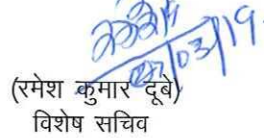 03/19
(रमेश कुमार दूबे)
विशेष सचिव